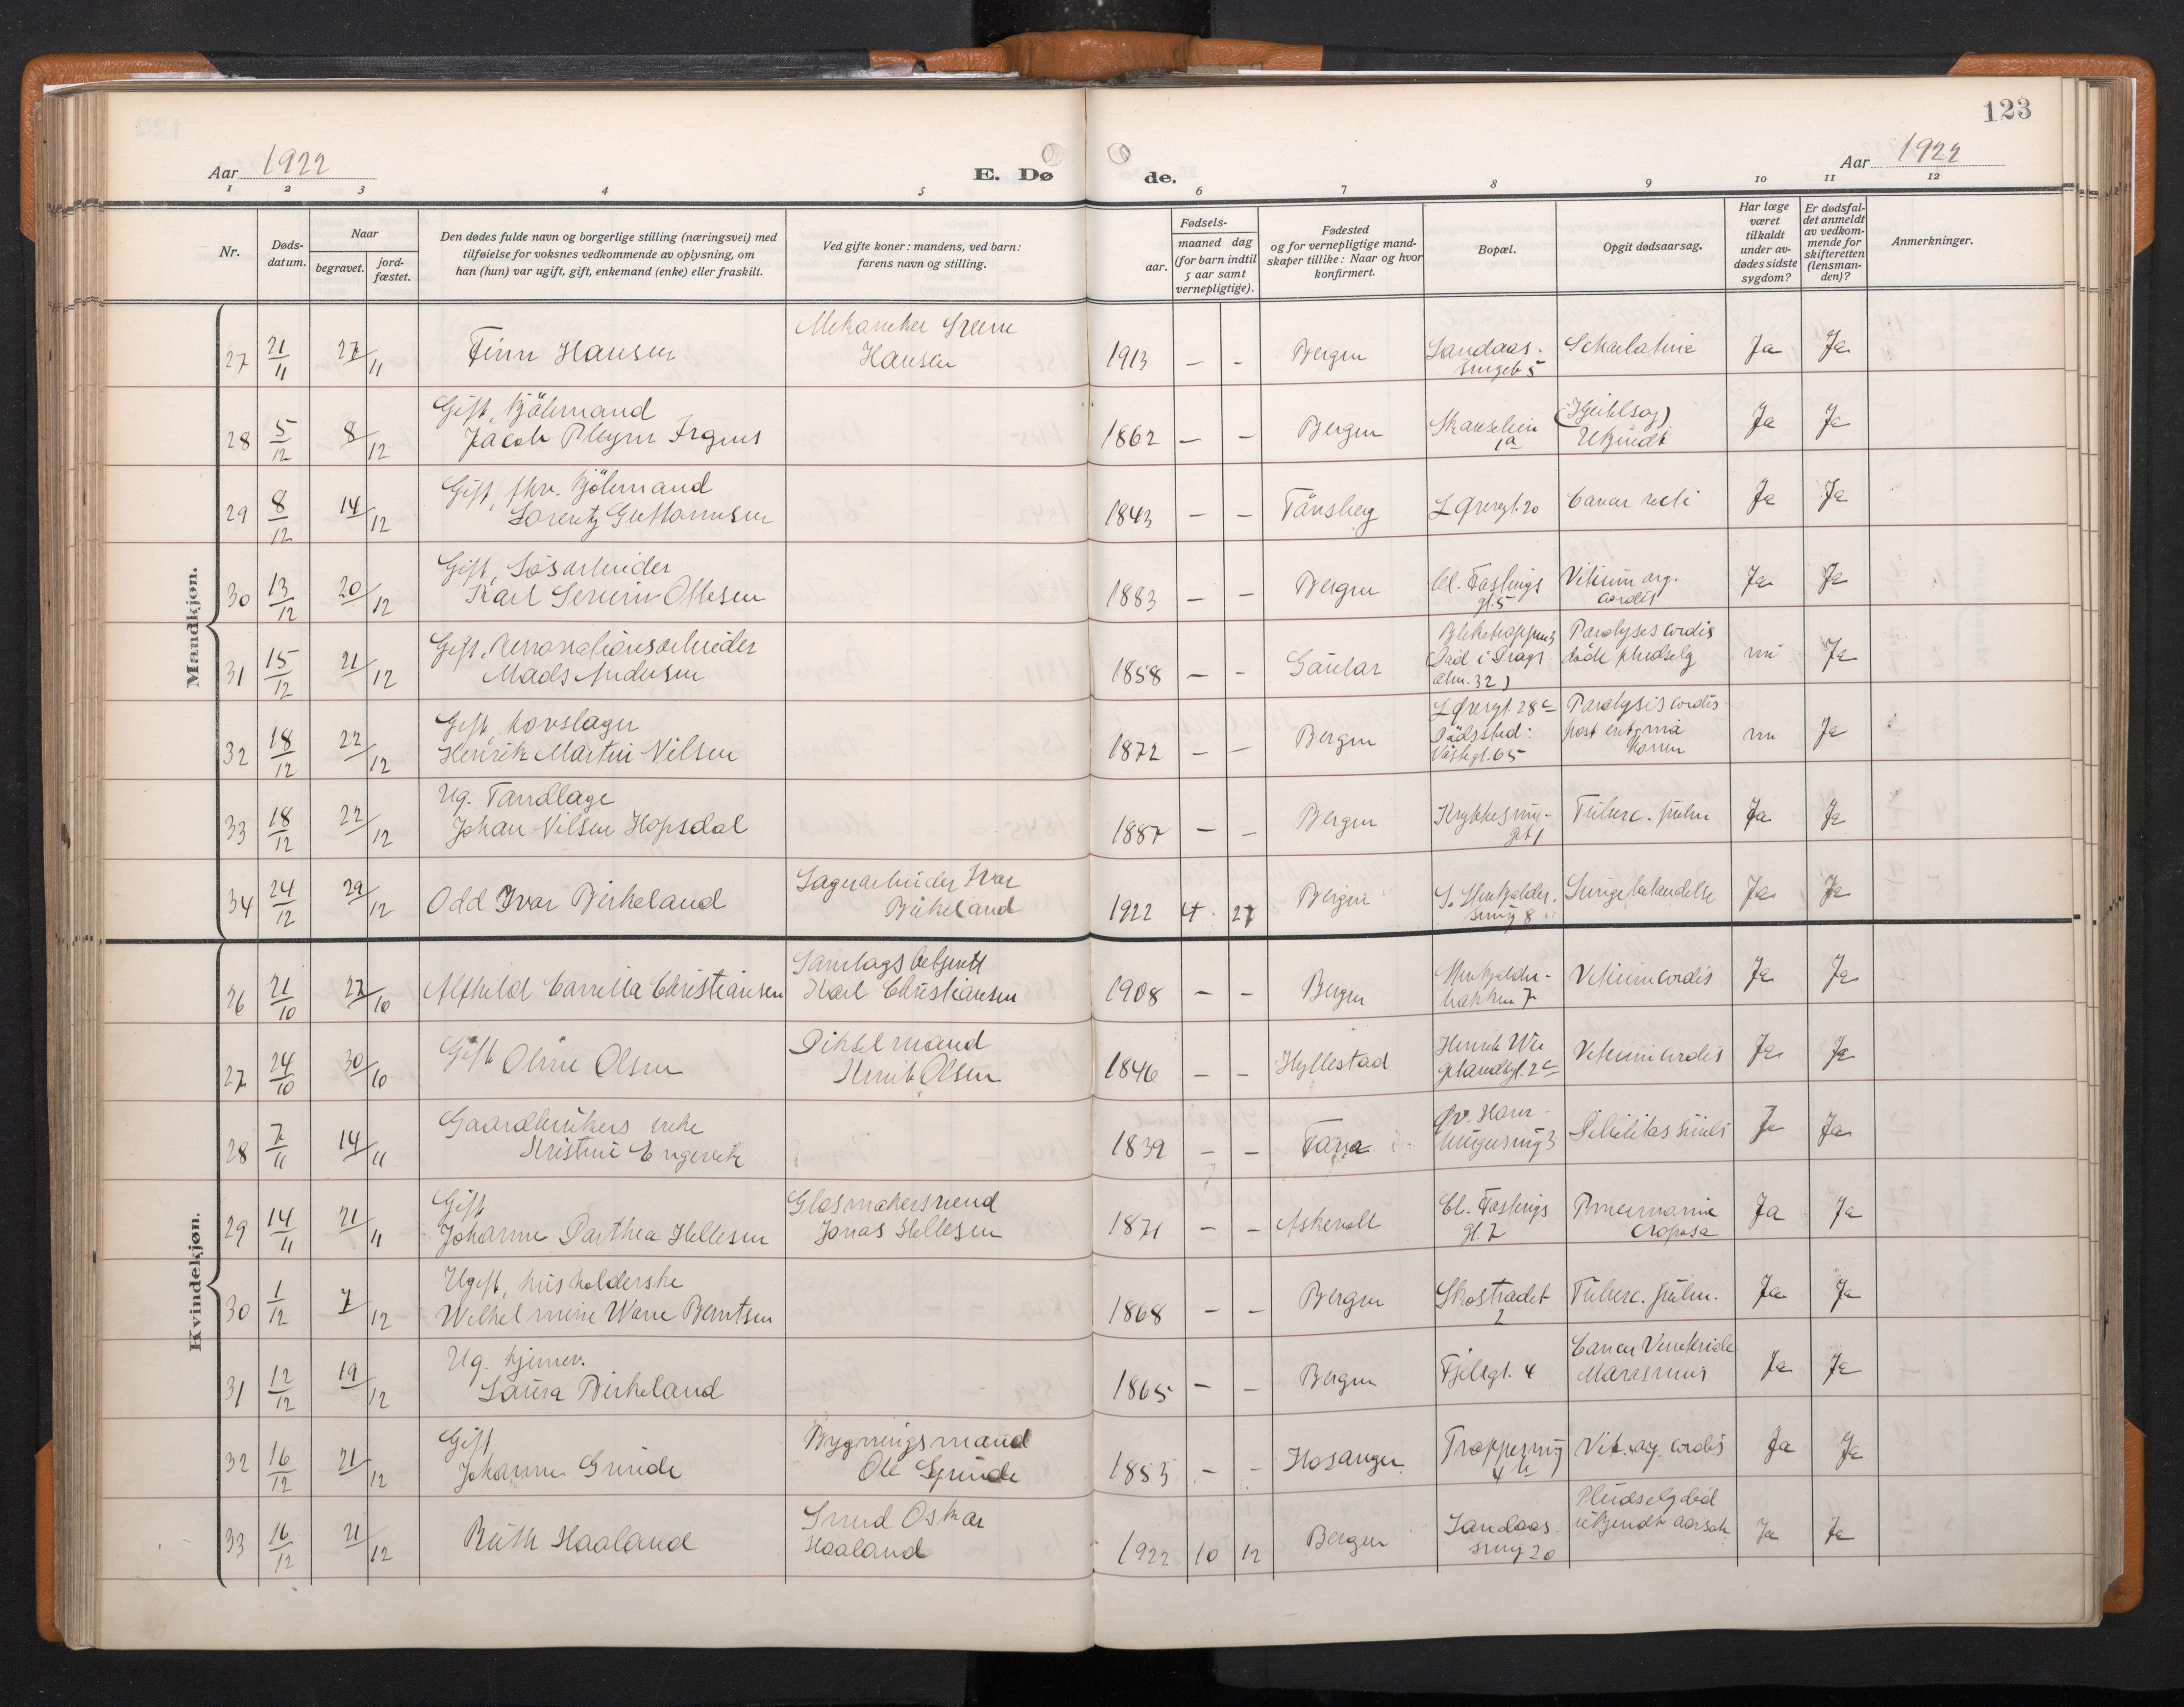 123
Aar 1922
E. Dø
de.
Aar 1922
1 2 3 4 5 6 7 8 9 10 11 12
Nr.
Døds-
datum.
Naar
begravet.
jord-
fæstet.
Den dødes fulde navn og borgerlige stilling (næringsvei) med
tilføielse for voksnes vedkommende av oplysning, om
han (hun) var ugift, gift, enkemand (enke) eller fraskilt.
Ved gifte koner: mandens, ved barn:
farens navn og stilling.
Fødsels-
aar.
maaned dag
(for barn indtil
5 aar samt
vernepligtige).
Fødested
og for vernepligtige mand-
skaper tillike: Naar og hvor
konfirmert.
Bopæl.
Opgit dødsaarsag.
Har læge
været
tilkaldt
under av-
dødes sidste
sygdom?
Er dødsfal-
det anmeldt
av vedkom-
mende for
skifteretten
(lensman-
den)?
Anmerkninger.
Mandkjøn.
27 21/11 27/11 Finn Hansen
Hansen
1913 - - Bergen Landaas-
smuget 5
Scharlatina Ja Ja
28 5/12 8/12 Gift, Kjölemand
Jacob Irgens
1862 - - Bergen
1a
Ukjendt Ja Ja
29 8/12 14/12 Gift, fhv. Kjölemand
Lorentz
1843 - - Tönsberg L Øvregt. 20 Cancer recti Ja Ja
30 13/12 20/12 Gift, Løsarbeider
Karl Severin Ottesen
1883 - - Bergen Cl. Fastings
gt. 5
Vitium org.
cordis
Ja Ja
31 15/12 21/12 Gift, Renovationsarbeider
Mads Andersen
1858 - - Gaular
(Död i Drags
alm. 32)
Paralysis cordis
döde pludselig
nei Ja
32 18/12 22/12 Gift, hovslager
Henrik Martin Nilsen
1872 - - Bergen L Øvregt. 28c
Dödssted:
65
Paralysis cordis
post
nei Ja
33 18/12 22/12 Ug. Tandlæge
Johan Nilsen Hopsdal
1887 - - Bergen
gt 1
Tuberc. pulm Ja Ja
34 24/12 29/12 Odd Ivar Birkeland
Lagerarbeider Ivar
Birkeland
1922 4 27 Bergen
smug 8
Lungebetændelse Ja Ja
Kvindekjøn.
26 21/10 27/10 Alfhild Camilla Christiansen
Samlagsbetjent
Karl Christiansen
1908 - - Bergen
bakken 7
Vitium cordis Ja Ja
27 24/10 30/10 Gift Oline Olsen
Pikselmand
Henrik Olsen
1846 - - Hyllestad Henrik We
gelandsgt. 2c
Vitium cordis Ja Ja
28 7/11 14/11 Gaardbrukers enke
Kristine Engevik
1839 - - Øv. Ham-
burgersmug 3
Debilitas senilis Ja Ja
29 14/11 21/11 Gift
Johanne Dorthea Hellesen
Glasmakersvend
Jonas Hellesen
1871 - - Askevold Cl. Fastings
gt. 7
Pneumonia
croposa
Ja Ja
30 1/12 7/12 Ugift, husholderske
Wilhelmine Berntsen
1868 - - Bergen Skostradet
2
Tuberc. pulm. Ja Ja
31 12/12 19/12 Ug. hjemmev.
Laura Birkeland
1865 - - Bergen Fjeldgt. 4 Cancer Ventriculi
Marasmus
Ja Ja
32 16/12 21/12 Gift
Johanne Grinde
Bygningsmand
Ole Grinde
1853 - - Hosanger Trappesmug
4b
Vit. org. cordis Ja Ja
33 16/12 21/12 Ruth Haaland
Smed Oskar
Haaland
1922 10 12 Bergen Landaas
smug 20
Pludselig død
ukjendt aarsak
Ja Ja